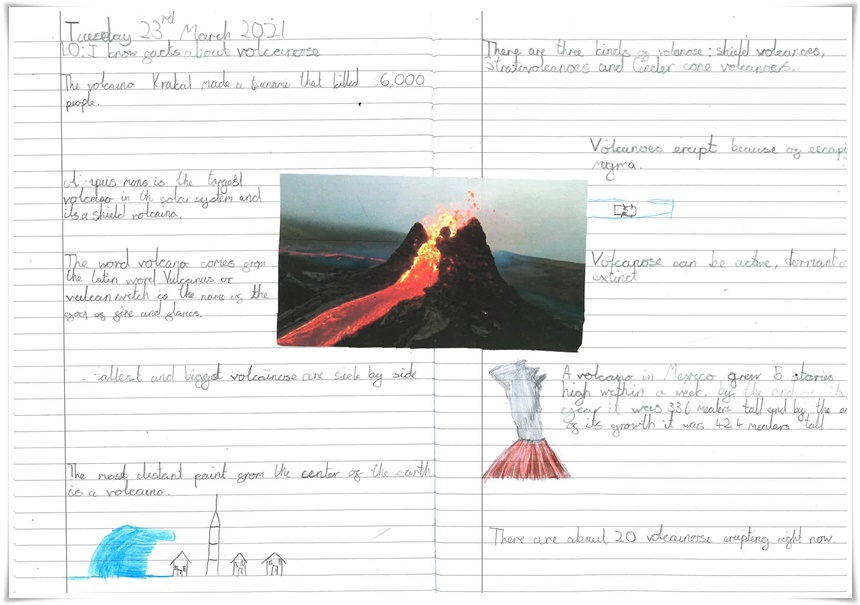 Tuesday 23rd March 2021
LO: I know facts about volcanose
The volcano Krakal made a tsunami that killed 36,000
people.
mons is the largest
volcano in th solar system and
its a shield volcaina.
The word volcano comes from
the latin word Vulcanus or
vulcan wich is the name of the
god of fire and flames.
and biggest volcainose are side by side
The most destant point from the center of the earth
is a volcaino.
There are three kinds of volanose: shield volcanoes,
Stratovolcanoes and Cinder cone volcanoers.
Volcanoes erupt because of escapi
mgma.
Volcanose can be active, dormant o
extinct
A volcano in Mexico grew 5 stories
high within a week, by the end of the
year it was 336 meaters tall and by the e
of its growth it was 424 meaters tall
There are about 20 volcainose erupting right now.